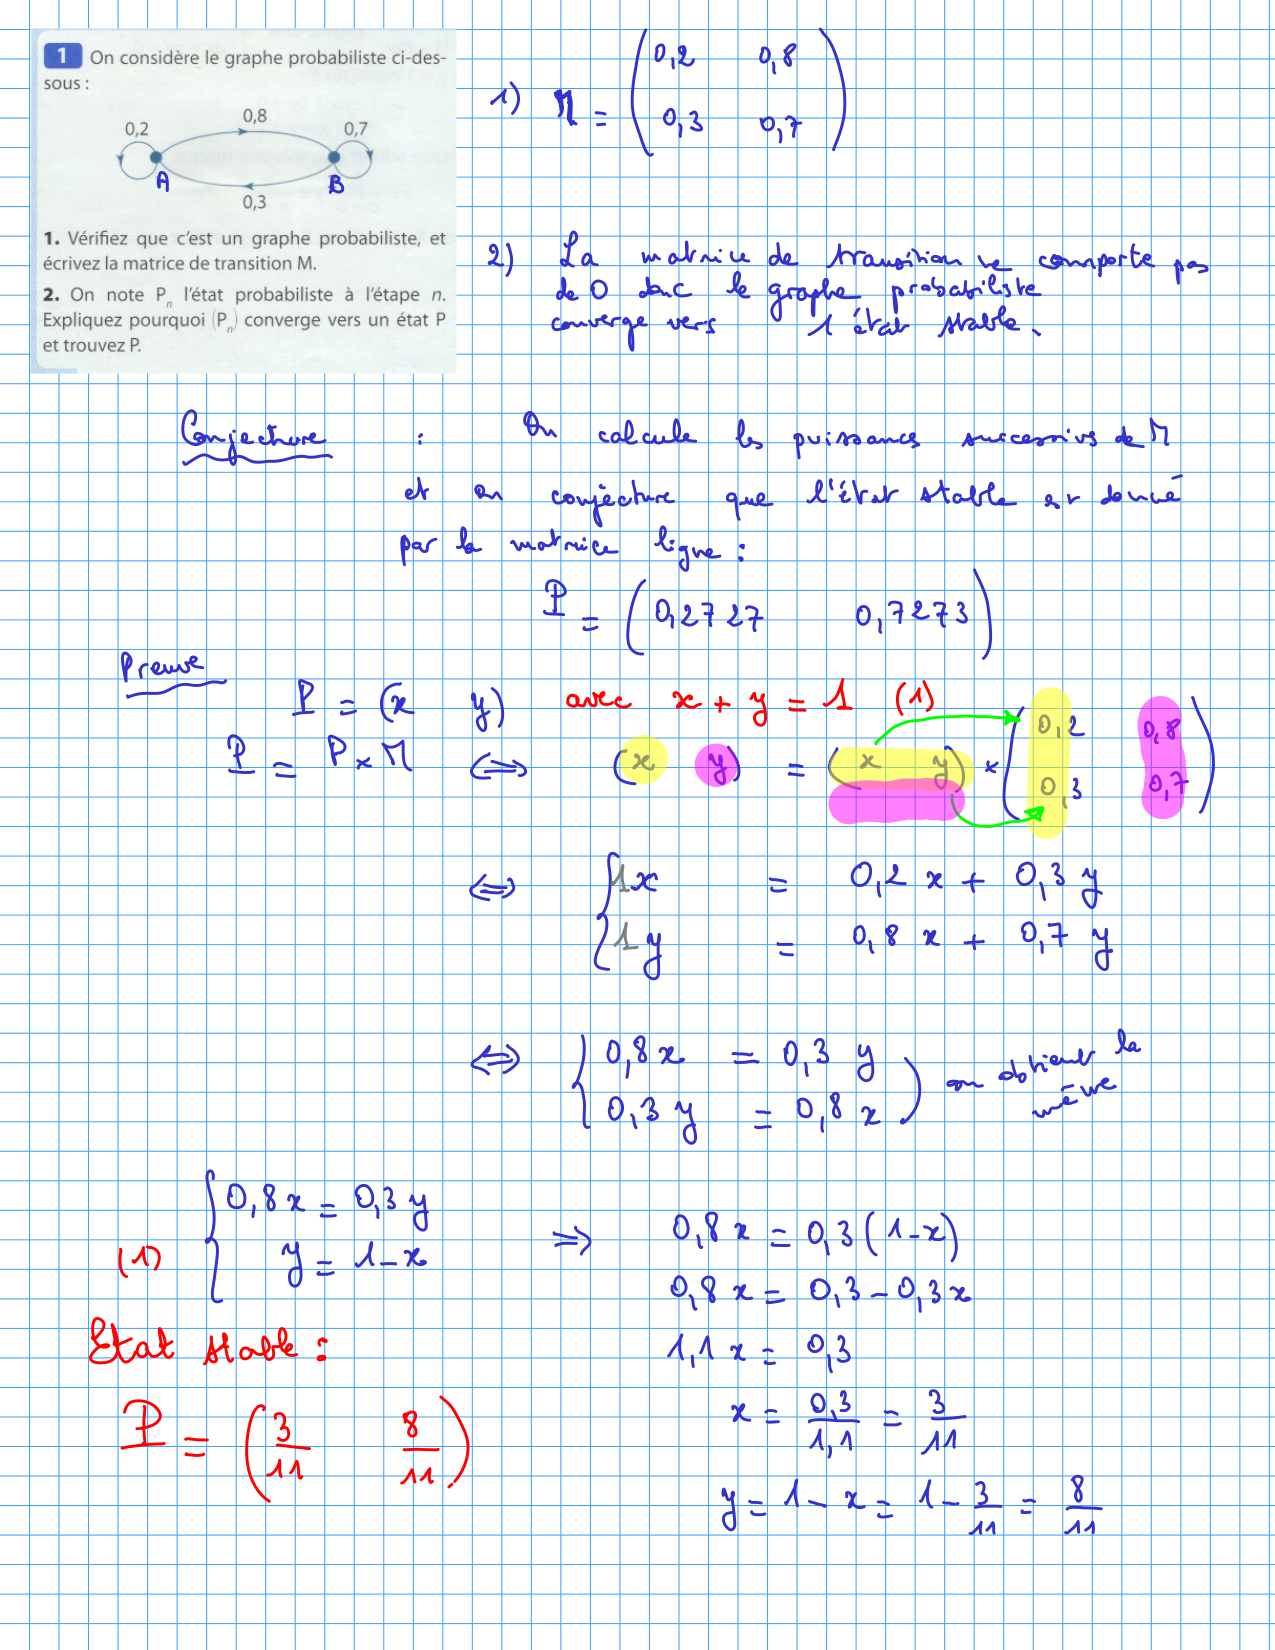 1 On considère le graphe probabiliste ci-des-
sous :
0,8
0,2 0,7
A B
0,3
1. Vérifiez que c'est un graphe probabiliste, et
écrivez la matrice de transition M.
2. On note Pn l'état probabiliste à l'étape n.
Expliquez pourquoi (Pn) converge vers un état P
et trouvez P.
1) M = ( 0,2 0,8
0,3 0,7 )
2) La matrice de transition ne comporte pas
de 0 donc le graphe probabiliste
converge vers 1 état stable.
Conjecture : On calcule les puissances successives de M
et on conjecture que l'état stable est donné
par la matrice ligne :
P = ( 0,2727 0,7273 )
Preuve
P = (x y) avec x + y = 1 (1)
P = P × M ⟺ (x y) = (x y) × ( 0,2 0,8
0,3 0,7 )
⟺ { 1x = 0,2 x + 0,3 y
1y = 0,8 x + 0,7 y
⟺ { 0,8 x = 0,3 y
0,3 y = 0,8 x ) on obtient la
même
{ 0,8 x = 0,3 y
(1) y = 1 - x
⟹ 0,8 x = 0,3 (1 - x)
0,8 x = 0,3 - 0,3 x
1,1 x = 0,3
x = 0,3/1,1 = 3/11
y = 1 - x = 1 - 3/11 = 8/11
Etat stable :
P = ( 3/11 8/11 )